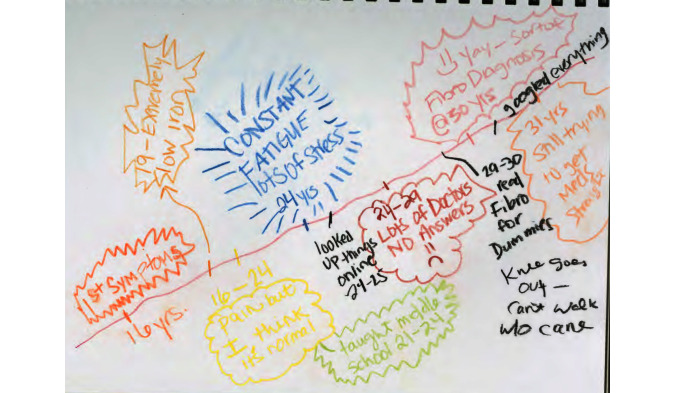 1st Symptoms
16 yrs.
19 - Extremely
low iron
16-24
pain but
I think
it's normal
CONSTANT
FATIGUE
lots of stress
24 yrs
taught middle
school 21-24
looked
up things
online
24-25
24-29
Lots of Doctors
NO Answers
Yay - Sort of
Fibro Diagnosis
@ 30 yrs
googled everything
29-30
read
Fibro
for
Dummies
Knee goes
out -
Can't walk
w/o cane
31 yrs
Still trying
to get
Meds